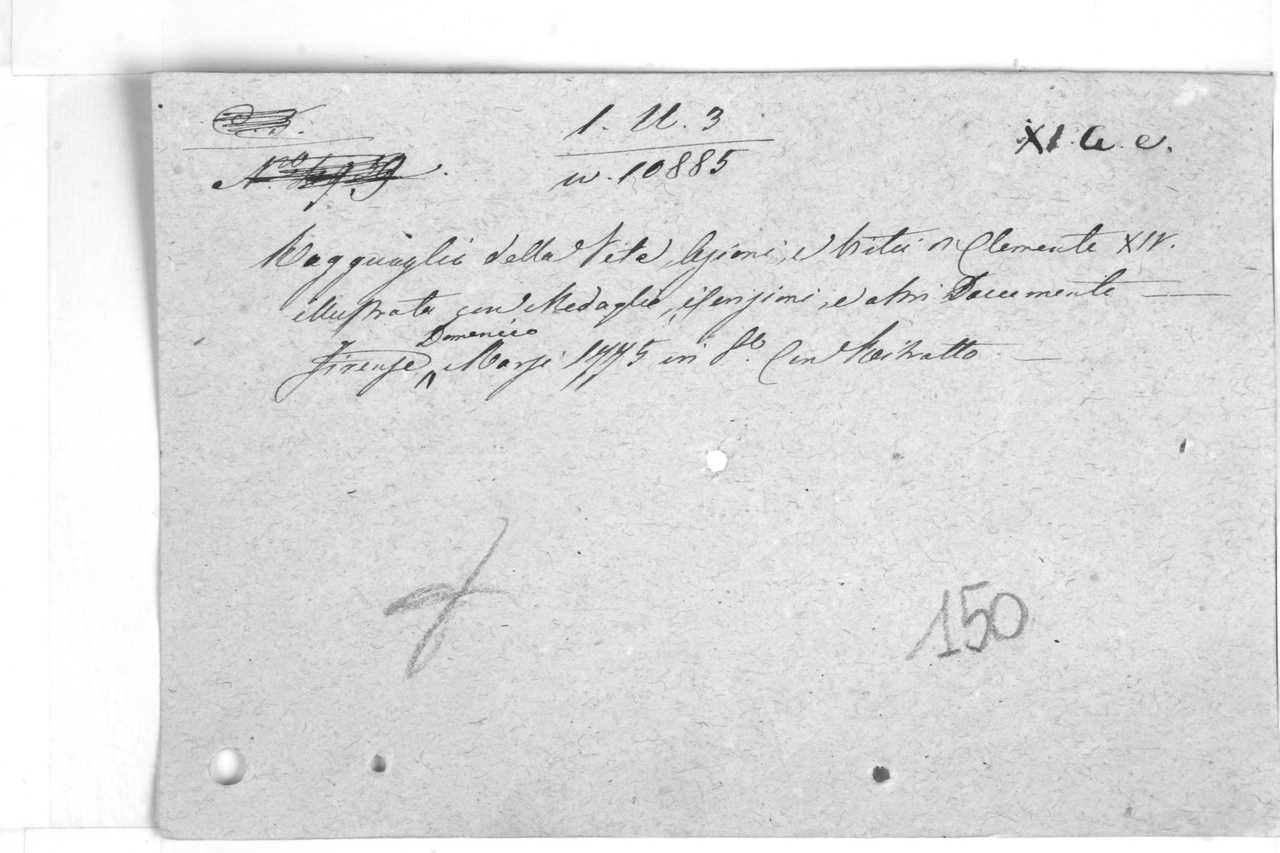 1. U. 3
XI. a. e.
n. 10885
Ragguaglio della Vita, Azioni, e Virtù di Clemente XIV.
illustrata con Medaglie, iscrizioni, e altri Documenti
Domenico
Firenze, Marzi 1775 in 8o. Con Ritratto
150